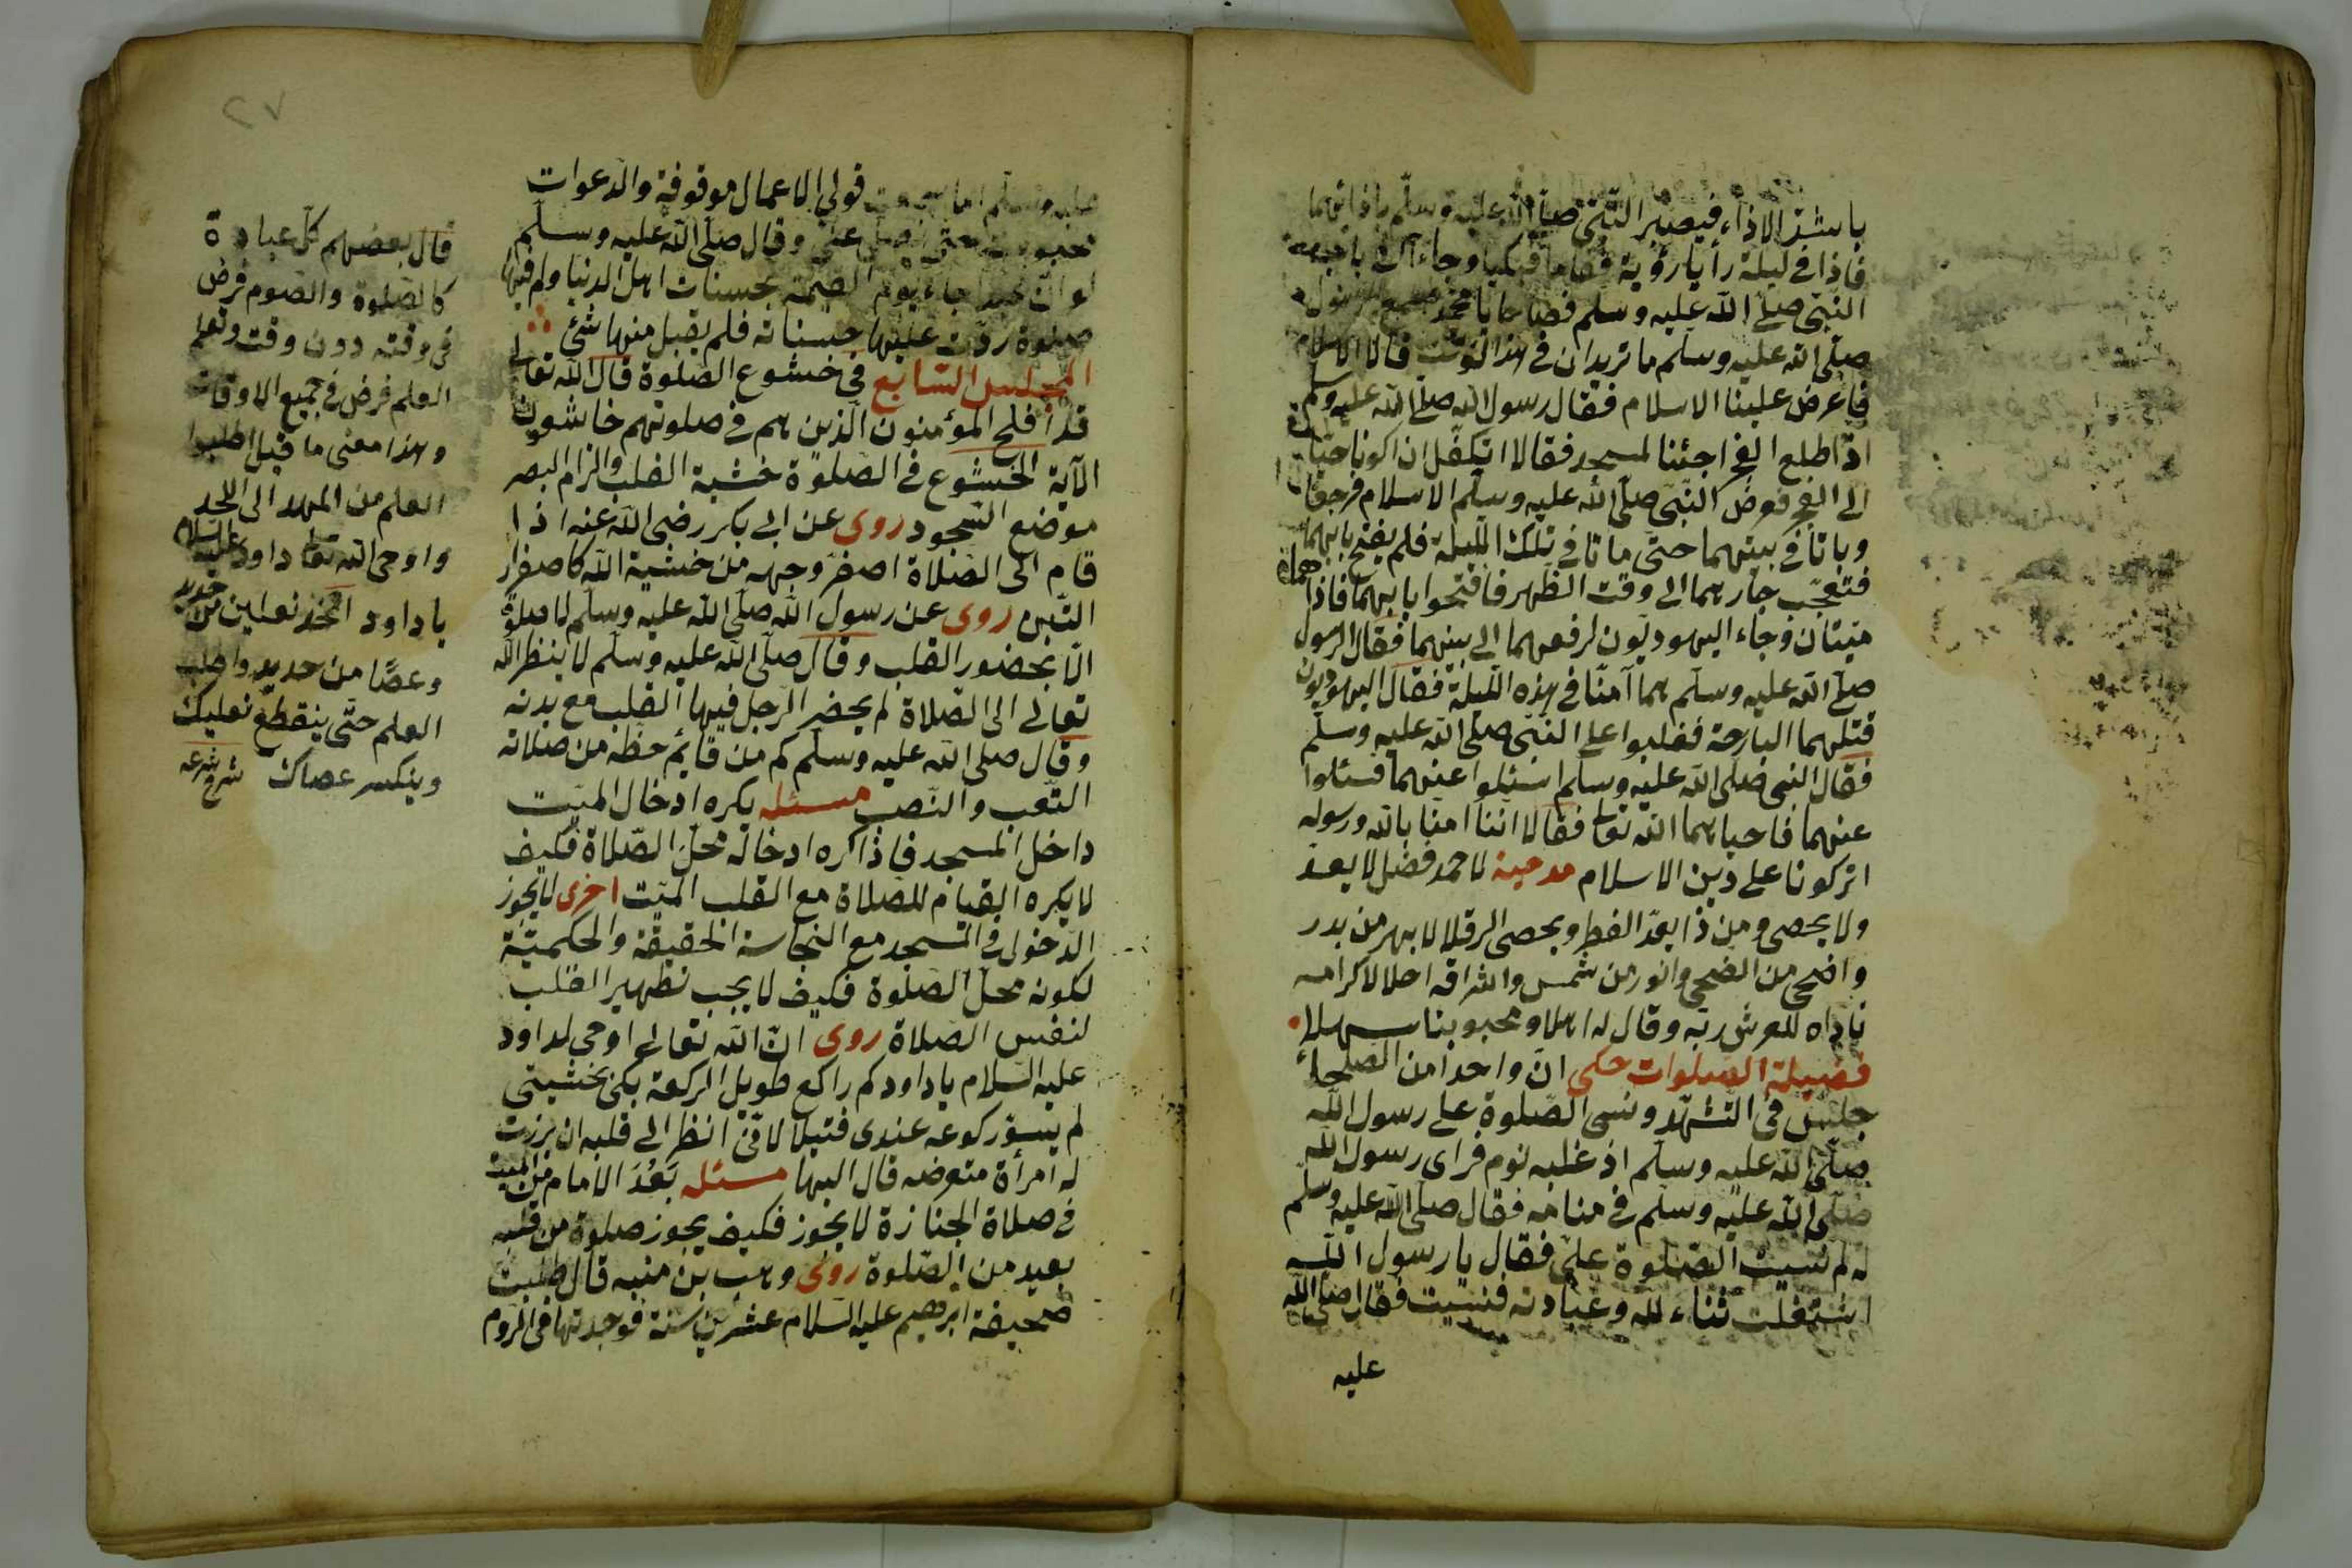 باشدّ الاذاء فيصبر النّبيّ صلّى الله عليه وسلّم باذائهما
فاذا في ليلة رأيا رؤية فقاما فبكيا وجاءآ الى باب
النّبيّ صلّى الله عليه وسلم فصاحا يا محمّد رسول
صلّى الله عليه وسلّم ما تريدان في هذا الوقت قالا الاسلام
فاعرض علينا الاسلام فقال رسول الله صلّى الله عليه وسلم
اذا طلع الفجر اجئنا لمسجد فقالا اتكفّل ان اكونا حيّا
الى الفجر فعرض النّبيّ صلّى الله عليه وسلّم الاسلام فرجعا
وباتا في بيتهما حتّى ماتا في تلك اللّيلة فلم يفتح بابهما
فتعجّب جارهما الى وقت الظّهر فافتحوا بابهما فاذا هما
ميّتان وجاء اليهوديّون لرفعهما الى بيتهما فقال الرسول
صلّى الله عليه وسلّم هما آمنّا في هذه اللّيلة فقال اليهوديون
قتلهما البارحة فغلبوا على النّبيّ صلّى الله عليه وسلّم
فقال النبي صلّى الله عليه وسلم اسئلوا عنهما فسئلوا
عنهما فاحياهما الله تعالى فقالا انّنا امنا بالله ورسوله
اتركونا على دين الاسلام مدحيه لاحمد فضل لا يعدّ
ولا يحصى ومن ذا يعدّ القطر ويحصى الرملا لابهر من بدر
واضحى من الضحى وانور من شمس واشراقه احلا لاكرامه
ناداه للعرش ربّه وقال له اهلا ومحبوبنا سهلا
فضيلة الصلوات حكى انّ واحدا من الصلحاء
جلس في التّشهّد ونسى الصّلوة على رسول الله
صلّى الله عليه وسلّم اذ غلبه نوم فراى رسول الله
صلّى الله عليه وسلّم في منامه فقال صلّى الله عليه وسلم
له لم نسيت الصّلوة علىّ فقال يا رسول الله
اشتغلت ثناء لله وعبادته فنسيت فقال صلّى الله
عليه
٢٧
عليه وسلّم اما سمعت قولي الاعمال موقوفة والدعوات
محبوسة حتّى يصلّى علىّ وقال صلّى الله عليه وسلّم
لو انّ عبدا جاء يوم القيمة بحسنات اهل الدنيا ولم فيها
صلوة ردّت عليها حسناته فلم يقبل منها شئ
المجلس السّابع في خشوع الصّلوة قال الله تعالى
قد افلح المؤمنون الّذين هم في صلوتهم خاشعون
الآية الخشوع في الصّلوة خشية القلب والزام البصر
موضع السّجود روى عن ابي بكر رضى الله عنه اذا
قام الى الصّلاة اصفرّ وجهه من خشية الله كاصفرار
التّبن روى عن رسول الله صلّى الله عليه وسلّم لا صلوة
الّا بحضور القلب وقال صلّى الله عليه وسلّم لا ينظر الله
تعالى الى الصّلاة لم يحضر الرّجل فيها القلب مع بدنه
وقال صلى الله عليه وسلّم كم من قائم حظّه من صلاته
التّعب والنّصب مسئله يكره ادخال الميّت
داخل المسجد فاذا كره ادخاله محلّ الصّلاة فكيف
لا يكره القيام للصّلاة مع القلب الميّت اخرى لا يجوز
الدّخول في المسجد مع النجاسة الحقيقة والحكميّة
لكونه محلّ الصّلوة فكيف لا يجب تطهير القلب
لنفس الصّلاة روى انّ الله تعالى اوحى لداود
عليه السّلام يا داود كم راكع طويل الركعة بكى بخشيتى
لم يسوّ ركوعه عندى فتيلا لانّى انظر الى قلبه ان برزت
له امرأة متعرضه قال اليها مسئله بَعُدَ الامام من الميت
في صلاة الجنازة لا يجوز فكيف يجوز صلوة من قلبه
بعيد من الصّلوة روى وهب بن منبه قال طلبت
صحيفة ابرهيم عليه السّلام عشرين سنة فوجدتها فى الرّوم
قال بعضهم كلّ عبادة
كالصّلوة والصّوم فرض
في وقته دون وقت وتعلم
العلم فرض في جميع الاوقات
وهذا معنى ما قيل اطلبوا
العلم من المهد الى اللحد
واوحى الله تعالى داود عليه السلام
يا داود اتّخذ نعلين من حديد
وعصًا من حديد واطلب
العلم حتّى ينقطع نعليك
وينكسر عصاك شرح شرعه